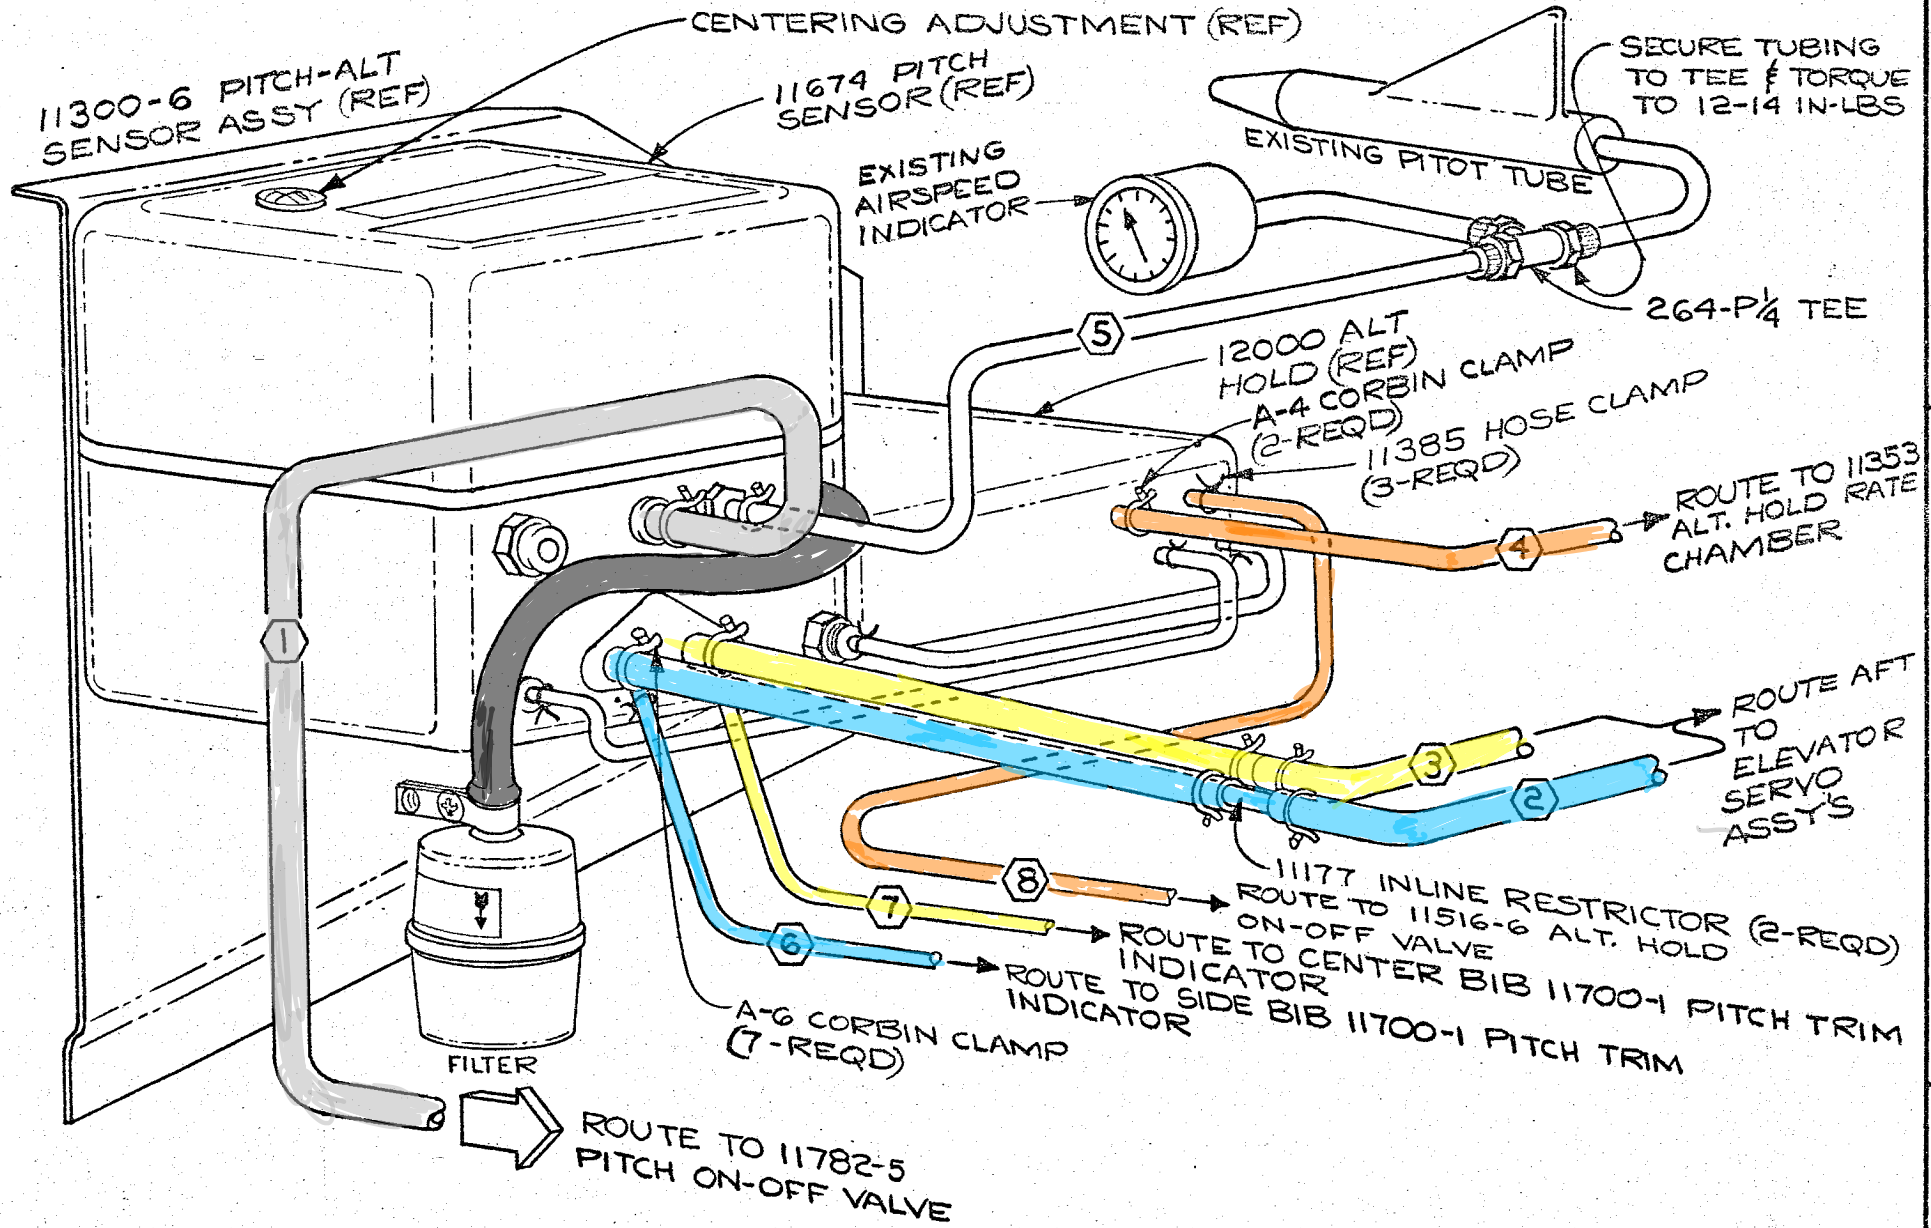 CENTERING ADJUSTMENT (REF)
11300-6 PITCH-ALT
SENSOR ASSY (REF)
11674 PITCH
SENSOR (REF)
SECURE TUBING
TO TEE & TORQUE
TO 12-14 IN-LBS
EXISTING
AIRSPEED
INDICATOR
EXISTING PITOT TUBE
264-P¼ TEE
5
12000 ALT
HOLD (REF)
A-4 CORBIN CLAMP
(2-REQD)
11385 HOSE CLAMP
(3-REQD)
ROUTE TO 11353
ALT. HOLD RATE
CHAMBER
4
1
ROUTE AFT
TO
ELEVATOR
SERVO
ASSY'S
3
2
11177 INLINE RESTRICTOR (2-REQD)
8
ROUTE TO 11516-6 ALT. HOLD
ON-OFF VALVE
7
ROUTE TO CENTER BIB 11700-1 PITCH TRIM
INDICATOR
6
ROUTE TO SIDE BIB 11700-1 PITCH TRIM
INDICATOR
A-6 CORBIN CLAMP
(7-REQD)
FILTER
ROUTE TO 11782-5
PITCH ON-OFF VALVE